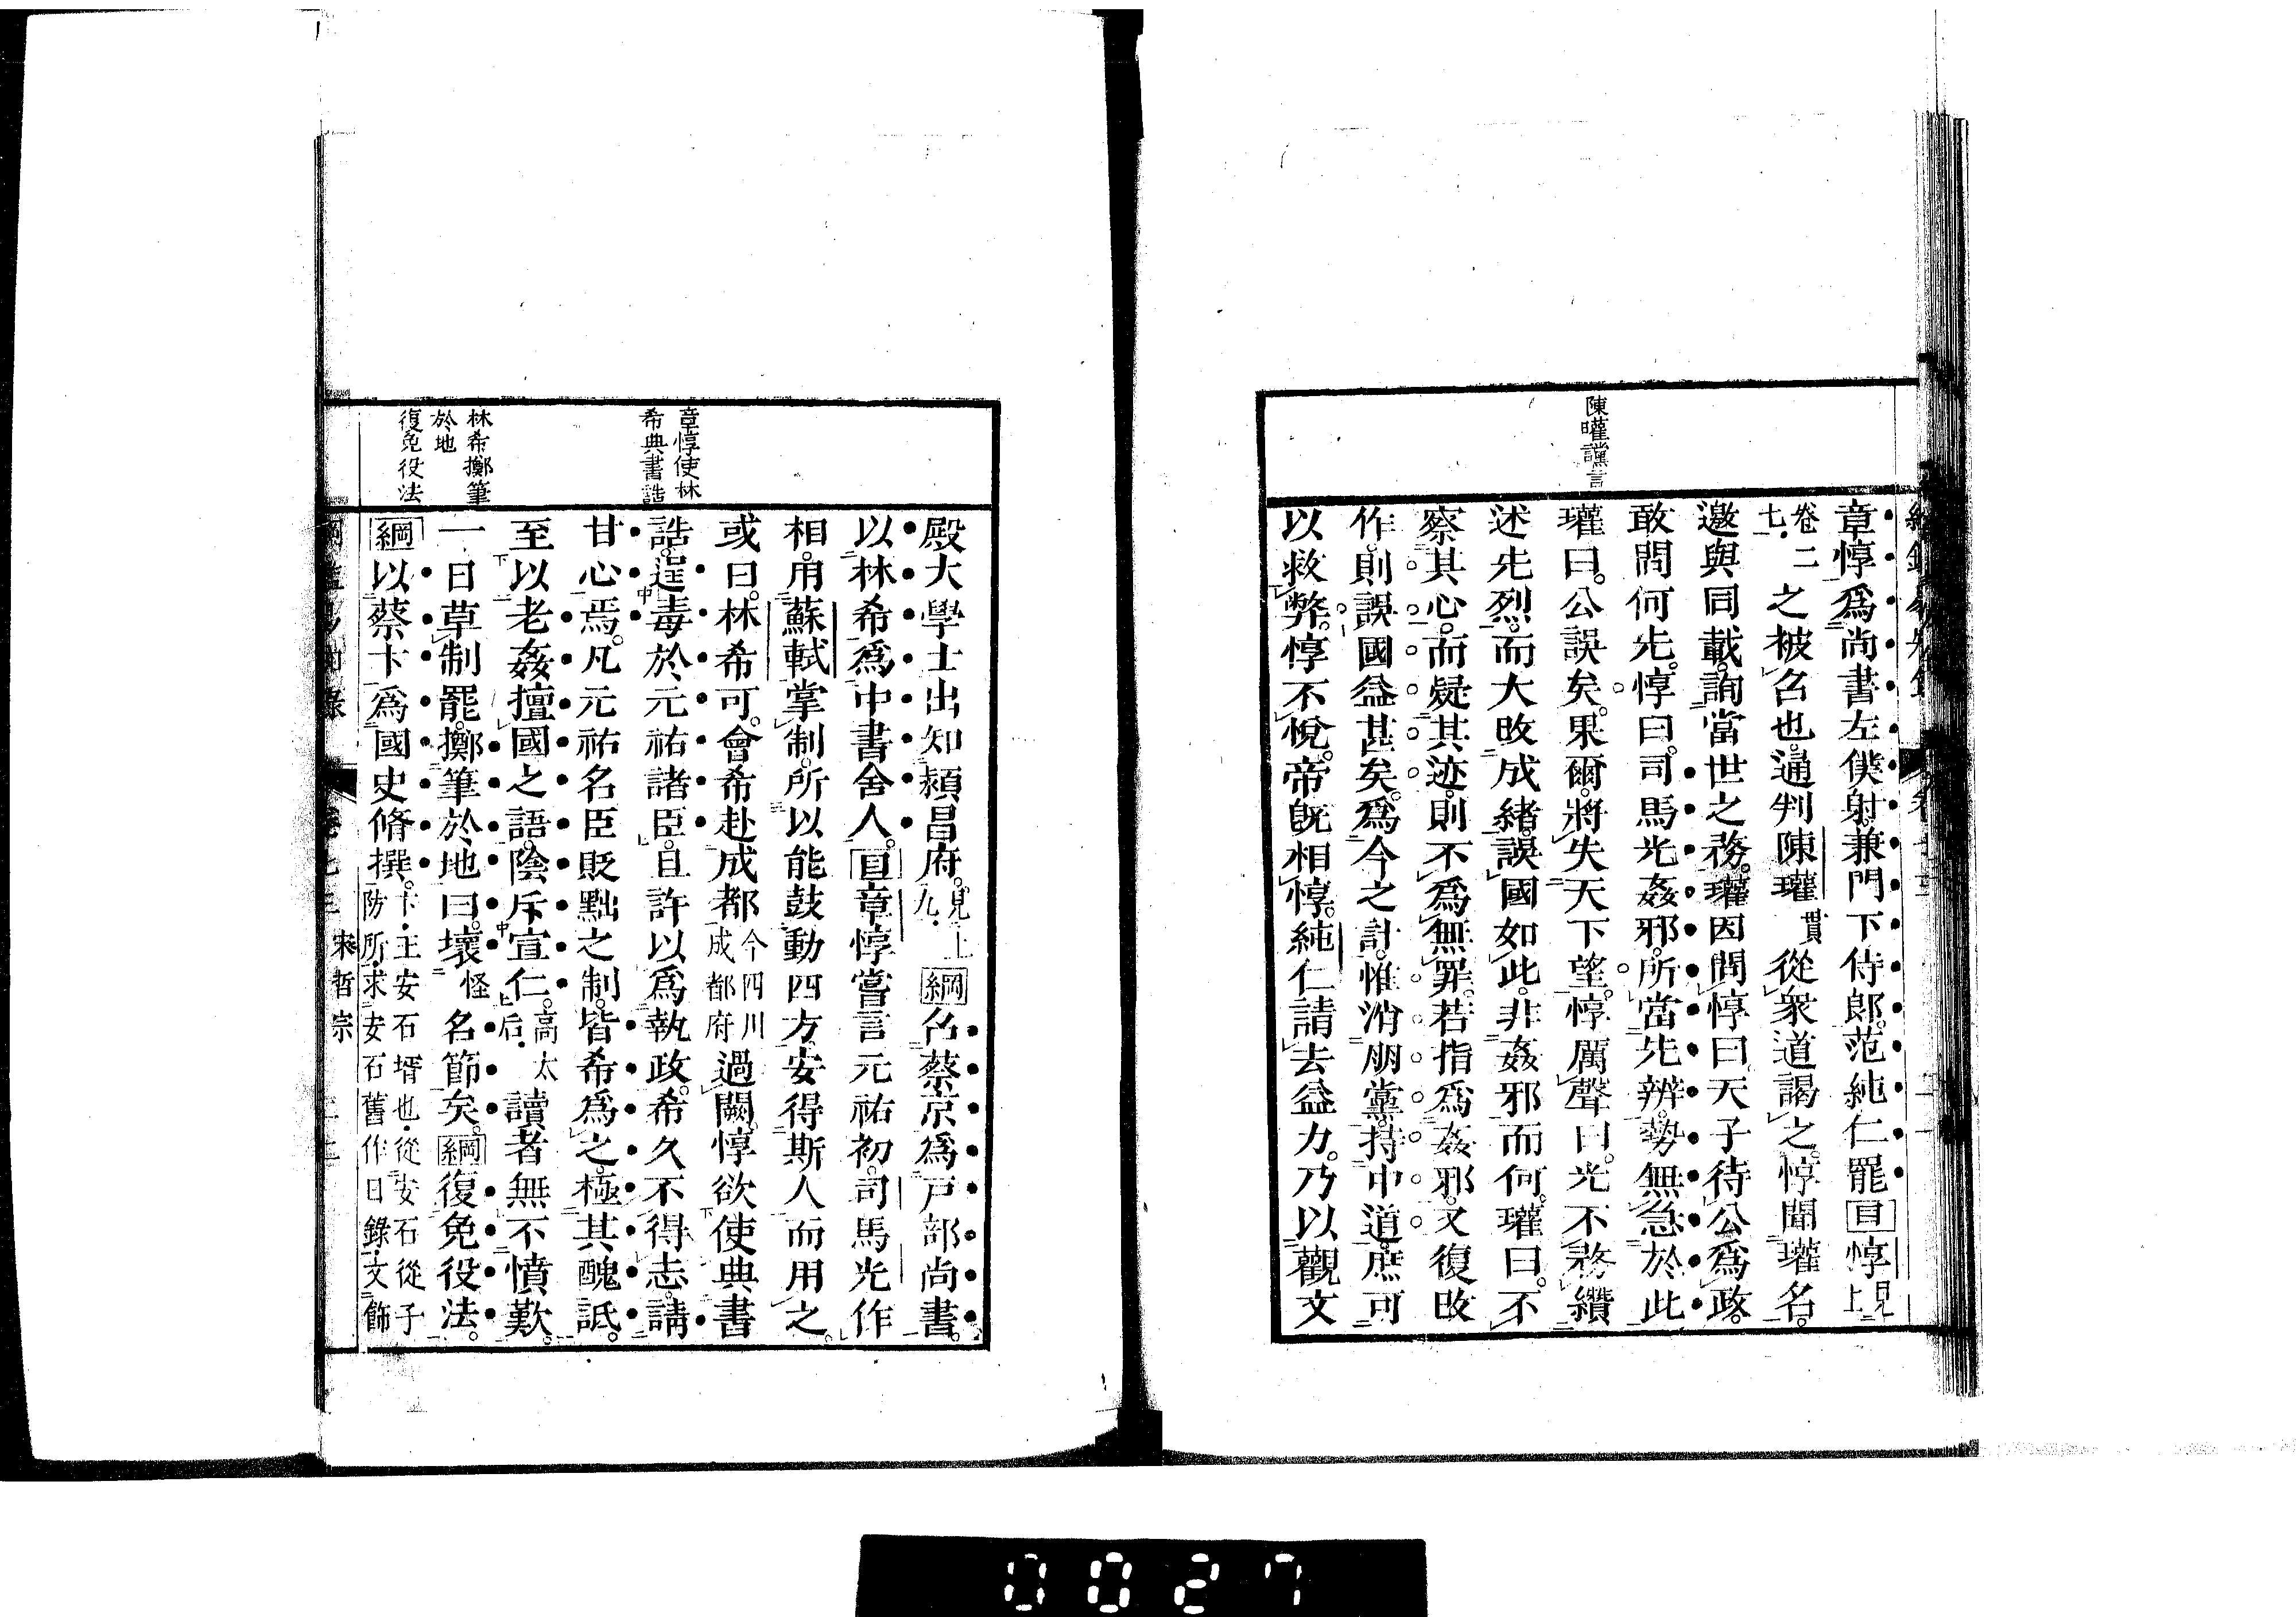 陳瓘讜言
章惇爲尚書左僕射。兼門下侍郎。范純仁罷目惇見上
卷二七。之被召也。通判陳瓘貫從衆道謁之。惇聞瓘名。
邀與同載。詢當世之務。瓘因問惇曰。天子待公爲政。
敢問何先。惇曰。司馬光姦邪。所當先辨。勢無急於此
瓘曰。公誤矣。果爾。將失天下望。惇厲聲曰。光不務纘
述先烈。而大改成緒。誤國如此。非姦邪而何。瓘曰。不
察其心。而疑其迹。則不爲無罪。若指爲姦邪。又復改
作。則誤國益甚矣。爲今之計。惟消朋黨。持中道。庶可
以救弊。惇不悅。帝旣相惇。純仁請去益力。乃以觀文
章惇使林
希典書誥
林希擲筆
於地
復免役法
殿大學士出知潁昌府。見上九。綱召蔡京爲戸部尚書。
以林希爲中書舍人。目章惇嘗言元祐初。司馬光作
相。用蘇軾掌制。所以能鼓動四方。安得斯人而用之。
或曰。林希可。會希赴成都今四川成都府過闕。惇欲使典書
誥。逞毒於元祐諸臣。且許以爲執政。希久不得志。請
甘心焉。凡元祐名臣貶黜之制。皆希爲之。極其醜詆。
至以老姦擅國之語。陰斥宣仁。高太后。讀者無不憤歎。
一日草制罷。擲筆於地曰。壞怪名節矣。綱復免役法。
綱以蔡卞爲國史脩撰。卞。王安石壻也。從安石從子防所。求安石舊作日錄。文飾
卷七三 宋哲宗
0027